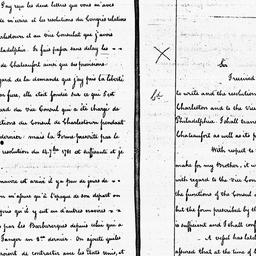 J'ay reçu les deux lettres que vous m'avez
m'ecrire et les resolutions du Congrès relatives
Charlestown et au Vice Consulat que j'avois
Philadelphie. Je fais passer sans delay les
de Chateaufort ainsi que ses provisions.
gard de la demande que j'ay pris la liberté
on frere, elle étoit fondée sur ce qu'il est
gard du Vice Consul qui a été chargé de
ctions du Consul de Charlestown pendant
dernier. mais la Forme prescrite par le
resolution du 24 7bre 1781 est suffisante et je
navire est arrivé il y a peu de jours de
on m'assure qu'à l'Epoque de son depart on
près qu'il y eut un d'autres navires
par les Barbaresques depuis celui qui a
Tanger en 8bre dernier. On ajoute qu'elles
seroient de contracter avec les Etats Unis, et
X
lt
Sir
I received
to write and the resolution
Charleston and to the Vice
Philadelphia. I shall transm
Chateaufort as well as its p
With respect to
make for my Brother, it w
with regard to the Vice Con
the functions of the Consul
but the form prescribed by th
is sufficient and I shall conf
A vessel has lately
assured that at the time of